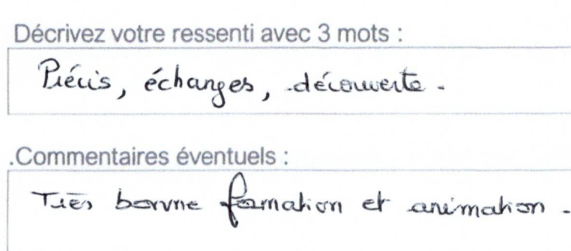 Décrivez votre ressenti avec 3 mots :
Précis, échanges, découverte.
.Commentaires éventuels :
Très bonne formation et animation.